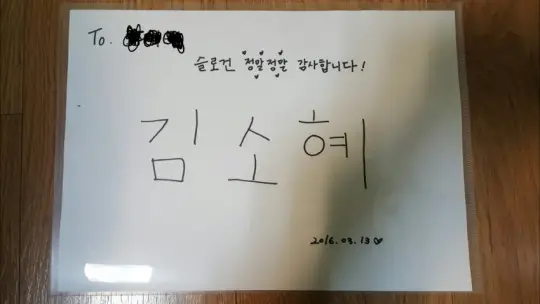 To.
슬로건 정말정말 감사합니다!
김소혜
2016.03.13♡